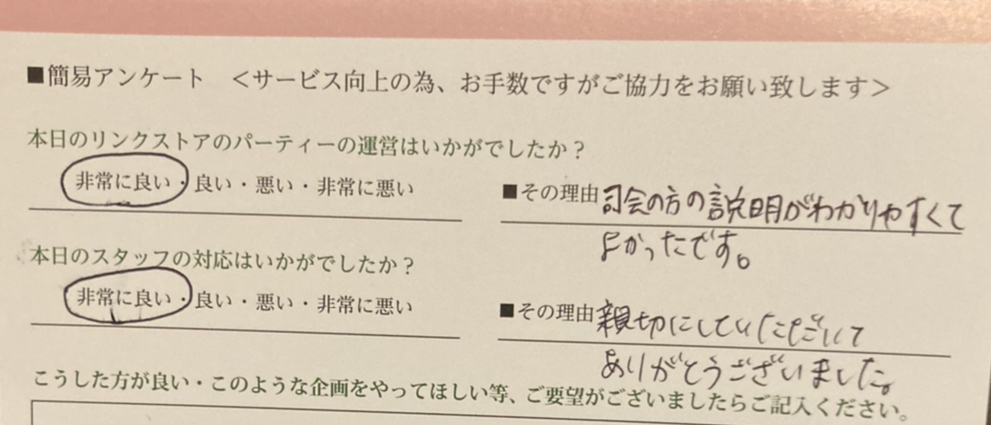 ■簡易アンケート <サービス向上の為、お手数ですがご協力をお願い致します>
本日のリンクストアのパーティーの運営はいかがでしたか?
非常に良い・良い・悪い・非常に悪い
■その理由 司会の方の説明がわかりやすくて
よかったです。
本日のスタッフの対応はいかがでしたか?
非常に良い・良い・悪い・非常に悪い
■その理由 親切にしていただいて
ありがとうございました。
こうした方が良い・このような企画をやってほしい等、ご要望がございましたらご記入ください。